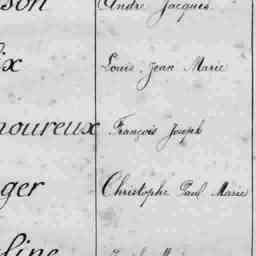 son André Jacques
ix Louis Jean Marie
moureux François Joseph
ger Christophe Paul Marie
line